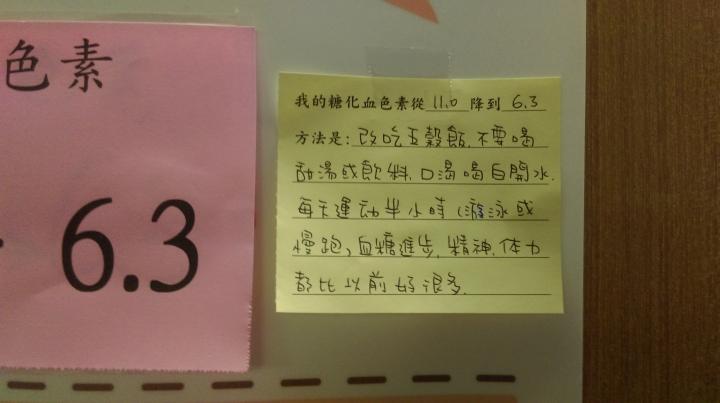 色素
6.3
我的糖化血色素從 11.0 降到 6.3
方法是: 改吃五穀飯.不要喝
甜湯或飲料.口渴喝白開水.
每天運动半小時(游泳或
慢跑),血糖進步.精神.体力
都比以前好很多.